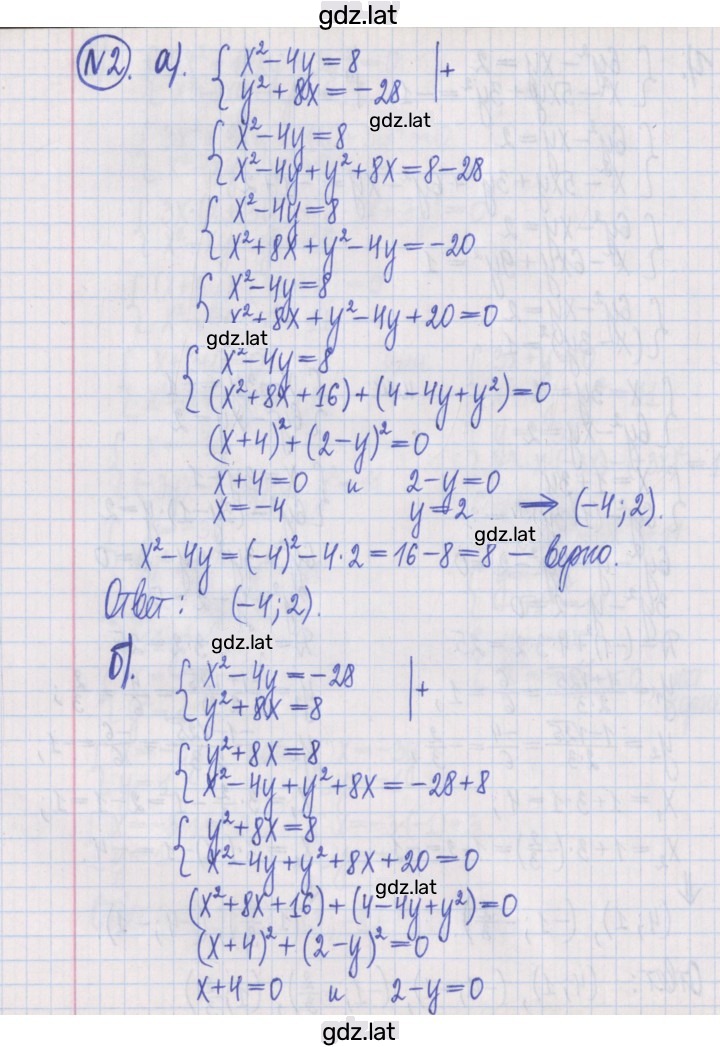 gdz.lat
№2. а). { x² − 4y = 8 | +
{ y² + 8x = −28
gdz.lat
{ x² − 4y = 8
{ x² − 4y + y² + 8x = 8 − 28
{ x² − 4y = 8
{ x² + 8x + y² − 4y = −20
{ x² − 4y = 8
{ x² + 8x + y² − 4y + 20 = 0
gdz.lat
{ x² − 4y = 8
{ (x² + 8x + 16) + (4 − 4y + y²) = 0
(x + 4)² + (2 − y)² = 0
x + 4 = 0 и 2 − y = 0
x = −4 y = 2 ⟹ (−4; 2).
gdz.lat
x² − 4y = (−4)² − 4·2 = 16 − 8 = 8 — верно.
Ответ: (−4; 2).
gdz.lat
б). { x² − 4y = −28 | +
{ y² + 8x = 8
{ y² + 8x = 8
{ x² − 4y + y² + 8x = −28 + 8
{ y² + 8x = 8
{ x² − 4y + y² + 8x + 20 = 0
gdz.lat
(x² + 8x + 16) + (4 − 4y + y²) = 0
(x + 4)² + (2 − y)² = 0
x + 4 = 0 и 2 − y = 0
gdz.lat